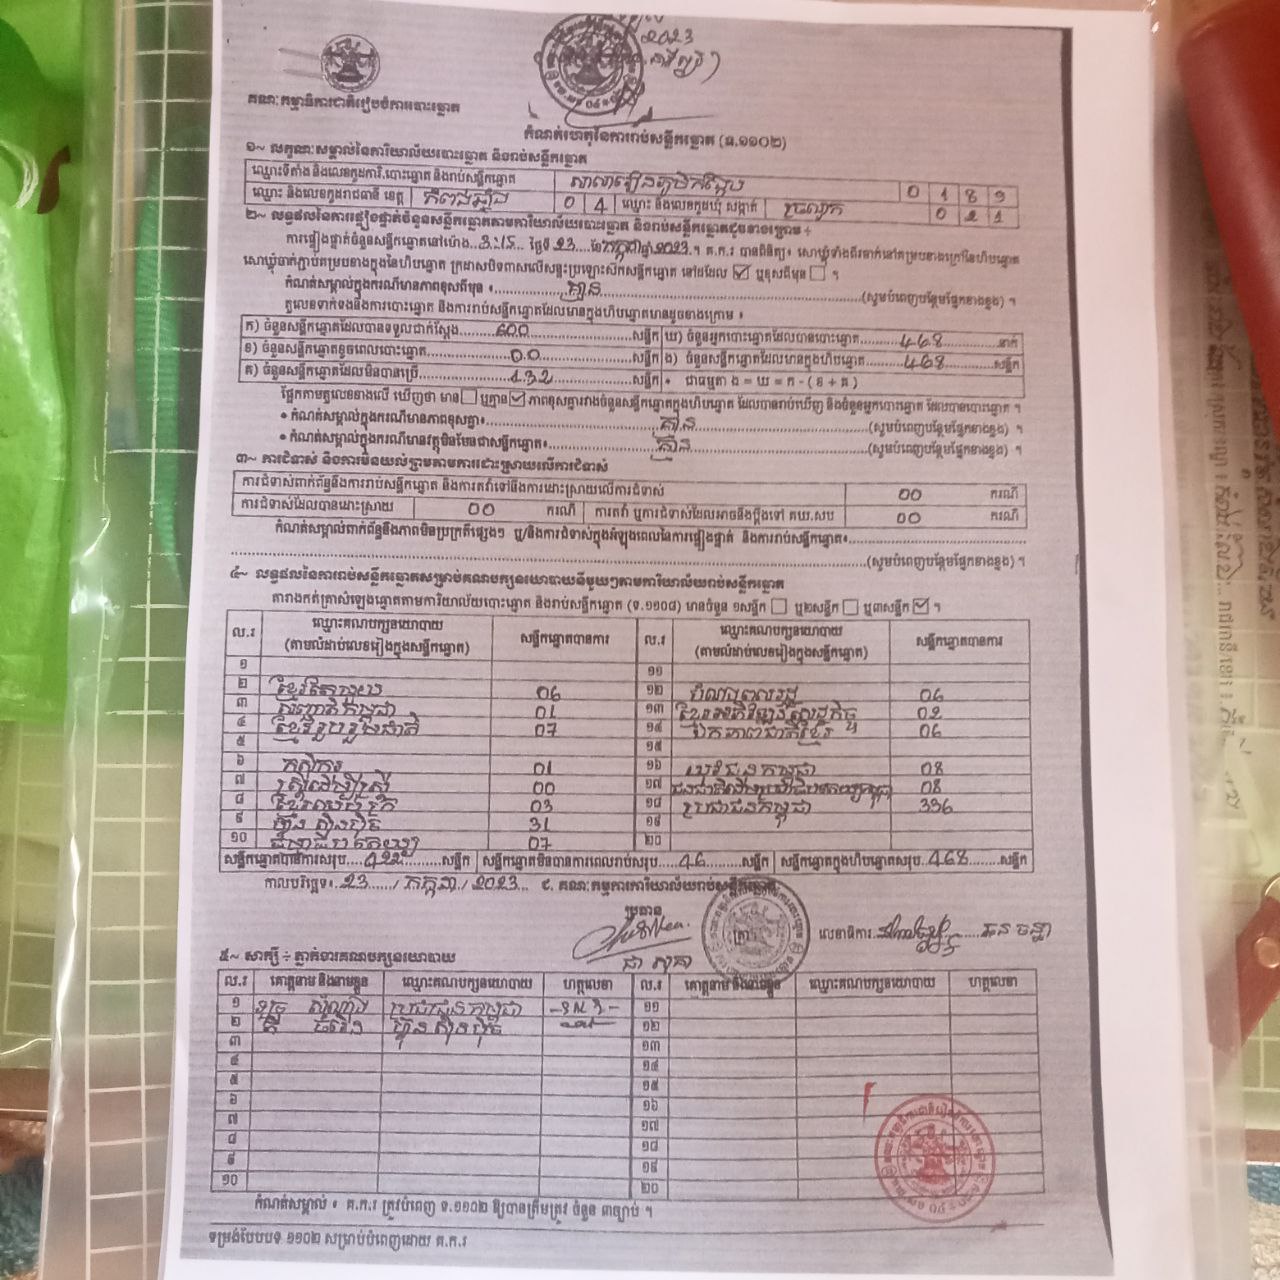 ២០២៣
គណៈកម្មាធិការជាតិរៀបចំការបោះឆ្នោត
កំណត់ហេតុនៃការរាប់សន្លឹកឆ្នោត (ធ.១១០២)
១~ លក្ខណៈសម្គាល់នៃការិយាល័យបោះឆ្នោត និងរាប់សន្លឹកឆ្នោត
ឈ្មោះទីតាំង និងលេខកូដការិ.បោះឆ្នោត និងរាប់សន្លឹកឆ្នោត 0 1 8 9
ឈ្មោះ និងលេខកូដរាជធានី ខេត្ត កំពង់ឆ្នាំង 0 4 ឈ្មោះ និងលេខកូដឃុំ សង្កាត់ 0 2 1
២~ លទ្ធផលនៃការផ្ទៀងផ្ទាត់ចំនួនសន្លឹកឆ្នោតតាមការិយាល័យបោះឆ្នោត និងរាប់សន្លឹកឆ្នោតដូចខាងក្រោម ÷
ការផ្ទៀងផ្ទាត់ចំនួនសន្លឹកឆ្នោតនៅម៉ោង..3:15.. ថ្ងៃទី 23....ខែកក្កដាឆ្នាំ2023.។ គ.ក.រ បានពិនិត្យ៖ សោឃ្លុំទាំងពីរចាក់នៅគម្របខាងក្រៅនៃហិបឆ្នោត
សោឃ្លុំចាក់ភ្ជាប់គម្របខាងក្នុងនៃហិបឆ្នោត ក្រដាសបិទពាសលើសន្ទះប្រឡោះស៊កសន្លឹកឆ្នោត នៅដដែល ☑ ឬខុសពីមុន ☐ ។
កំណត់សម្គាល់ក្នុងករណីមានភាពខុសពីមុន ៖ គ្មាន (សូមបំពេញបន្ថែមផ្នែកខាងខ្នង) ។
តួលេខទាក់ទងនឹងការបោះឆ្នោត និងការរាប់សន្លឹកឆ្នោតដែលមានក្នុងហិបឆ្នោតមានដូចខាងក្រោម ៖
ក) ចំនួនសន្លឹកឆ្នោតដែលបានទទួលជាក់ស្តែង 600 សន្លឹក ឃ) ចំនួនអ្នកបោះឆ្នោតដែលបានបោះឆ្នោត 468 នាក់
ខ) ចំនួនសន្លឹកឆ្នោតខូចពេលបោះឆ្នោត 00 សន្លឹក ង) ចំនួនសន្លឹកឆ្នោតដែលមានក្នុងហិបឆ្នោត 468 សន្លឹក
គ) ចំនួនសន្លឹកឆ្នោតដែលមិនបានប្រើ 132 សន្លឹក • ជាធម្មតា ង = ឃ = ក - ( ខ + គ )
ផ្អែកតាមតួលេខខាងលើ ឃើញថា មាន ☐ ឬគ្មាន ☑ ភាពខុសគ្នារវាងចំនួនសន្លឹកឆ្នោតក្នុងហិបឆ្នោត ដែលបានរាប់ឃើញ និងចំនួនអ្នកបោះឆ្នោត ដែលបានបោះឆ្នោត ។
• កំណត់សម្គាល់ក្នុងករណីមានភាពខុសគ្នា៖ គ្មាន (សូមបំពេញបន្ថែមផ្នែកខាងខ្នង) ។
• កំណត់សម្គាល់ក្នុងករណីមានវត្ថុមិនមែនជាសន្លឹកឆ្នោត៖ គ្មាន (សូមបំពេញបន្ថែមផ្នែកខាងខ្នង) ។
៣~ ការជំទាស់ និងការមិនយល់ព្រមតាមការដោះស្រាយលើការជំទាស់
ការជំទាស់ពាក់ព័ន្ធនឹងការរាប់សន្លឹកឆ្នោត និងការតវ៉ាទៅនឹងការដោះស្រាយលើការជំទាស់ 00 ករណី
ការជំទាស់ដែលបានដោះស្រាយ 00 ករណី ការតវ៉ា ឬការជំទាស់ដែលអាចនឹងប្តឹងទៅ គឃ.សប 00 ករណី
កំណត់សម្គាល់ពាក់ព័ន្ធនឹងភាពមិនប្រក្រតីផ្សេងៗ ឬ/និងការជំទាស់ក្នុងអំឡុងពេលនៃការផ្ទៀងផ្ទាត់ និងការរាប់សន្លឹកឆ្នោត៖
(សូមបំពេញបន្ថែមផ្នែកខាងខ្នង) ។
៤~ លទ្ធផលនៃការរាប់សន្លឹកឆ្នោតសម្រាប់គណបក្សនយោបាយនីមួយៗតាមការិយាល័យរាប់សន្លឹកឆ្នោត
តារាងកត់ត្រាសំឡេងឆ្នោតតាមការិយាល័យបោះឆ្នោត និងរាប់សន្លឹកឆ្នោត (ទ.១១០៨) មានចំនួន ១សន្លឹក ☐ ឬ២សន្លឹក ☐ ឬ៣សន្លឹក ☑ ។
ល.រ ឈ្មោះគណបក្សនយោបាយ (តាមលំដាប់លេខរៀងក្នុងសន្លឹកឆ្នោត) សន្លឹកឆ្នោតបានការ ល.រ ឈ្មោះគណបក្សនយោបាយ (តាមលំដាប់លេខរៀងក្នុងសន្លឹកឆ្នោត) សន្លឹកឆ្នោតបានការ
១ ១១
២ ខ្មែរតែមួយ 06 ១២ 06
៣ សញ្ជាតិកម្ពុជា 01 ១៣ ខ្មែរអភិវឌ្ឍន៍សេដ្ឋកិច្ច 02
៤ ខ្មែររួបរួមជាតិ 07 ១៤ ឯកភាពជាតិខ្មែរ 06
៥ ១៥
៦ កសិករ 01 ១៦ យុវជនកម្ពុជា 08
៧ ស្ត្រីដើម្បីស្ត្រី 00 ១៧ 08
៨ 03 ១៨ ប្រជាជនកម្ពុជា 336
៩ ហ៊្វុនស៊ិនប៉ិច 31 ១៩
១០ 07 ២០
សន្លឹកឆ្នោតបានការសរុប 422 សន្លឹក សន្លឹកឆ្នោតមិនបានការពេលរាប់សរុប 46 សន្លឹក សន្លឹកឆ្នោតក្នុងហិបឆ្នោតសរុប 468 សន្លឹក
កាលបរិច្ឆេទ៖ 23 / កក្កដា / 2023 ៩. គណៈកម្មការការិយាល័យរាប់សន្លឹកឆ្នោត
ប្រធាន លេខាធិការ ឆន ចន្នា
ជា សុផា
៥~ សាក្សី ÷ ភ្នាក់ងារគណបក្សនយោបាយ
ល.រ គោត្តនាម និងនាមខ្លួន ឈ្មោះគណបក្សនយោបាយ ហត្ថលេខា ល.រ គោត្តនាម និងនាមខ្លួន ឈ្មោះគណបក្សនយោបាយ ហត្ថលេខា
១ ប្រជាជនកម្ពុជា ១១
២ ហ៊្វុនស៊ិនប៉ិច ១២
៣ ១៣
៤ ១៤
៥ ១៥
៦ ១៦
៧ ១៧
៨ ១៨
៩ ១៩
១០ ២០
កំណត់សម្គាល់ ៖ គ.ក.រ ត្រូវបំពេញ ទ.១១០២ ឱ្យបានត្រឹមត្រូវ ចំនួន ៣ច្បាប់ ។
ទម្រង់បែបបទ ១១០២ សម្រាប់បំពេញដោយ គ.ក.រ